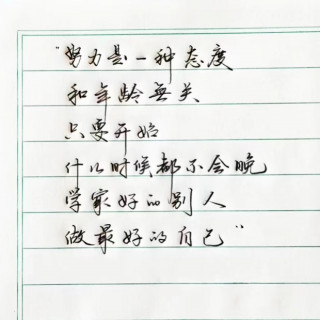 "努力是一种态度
和年龄無关
只要开始
什么时候都不会晚
学最好的别人
做最好的自己"